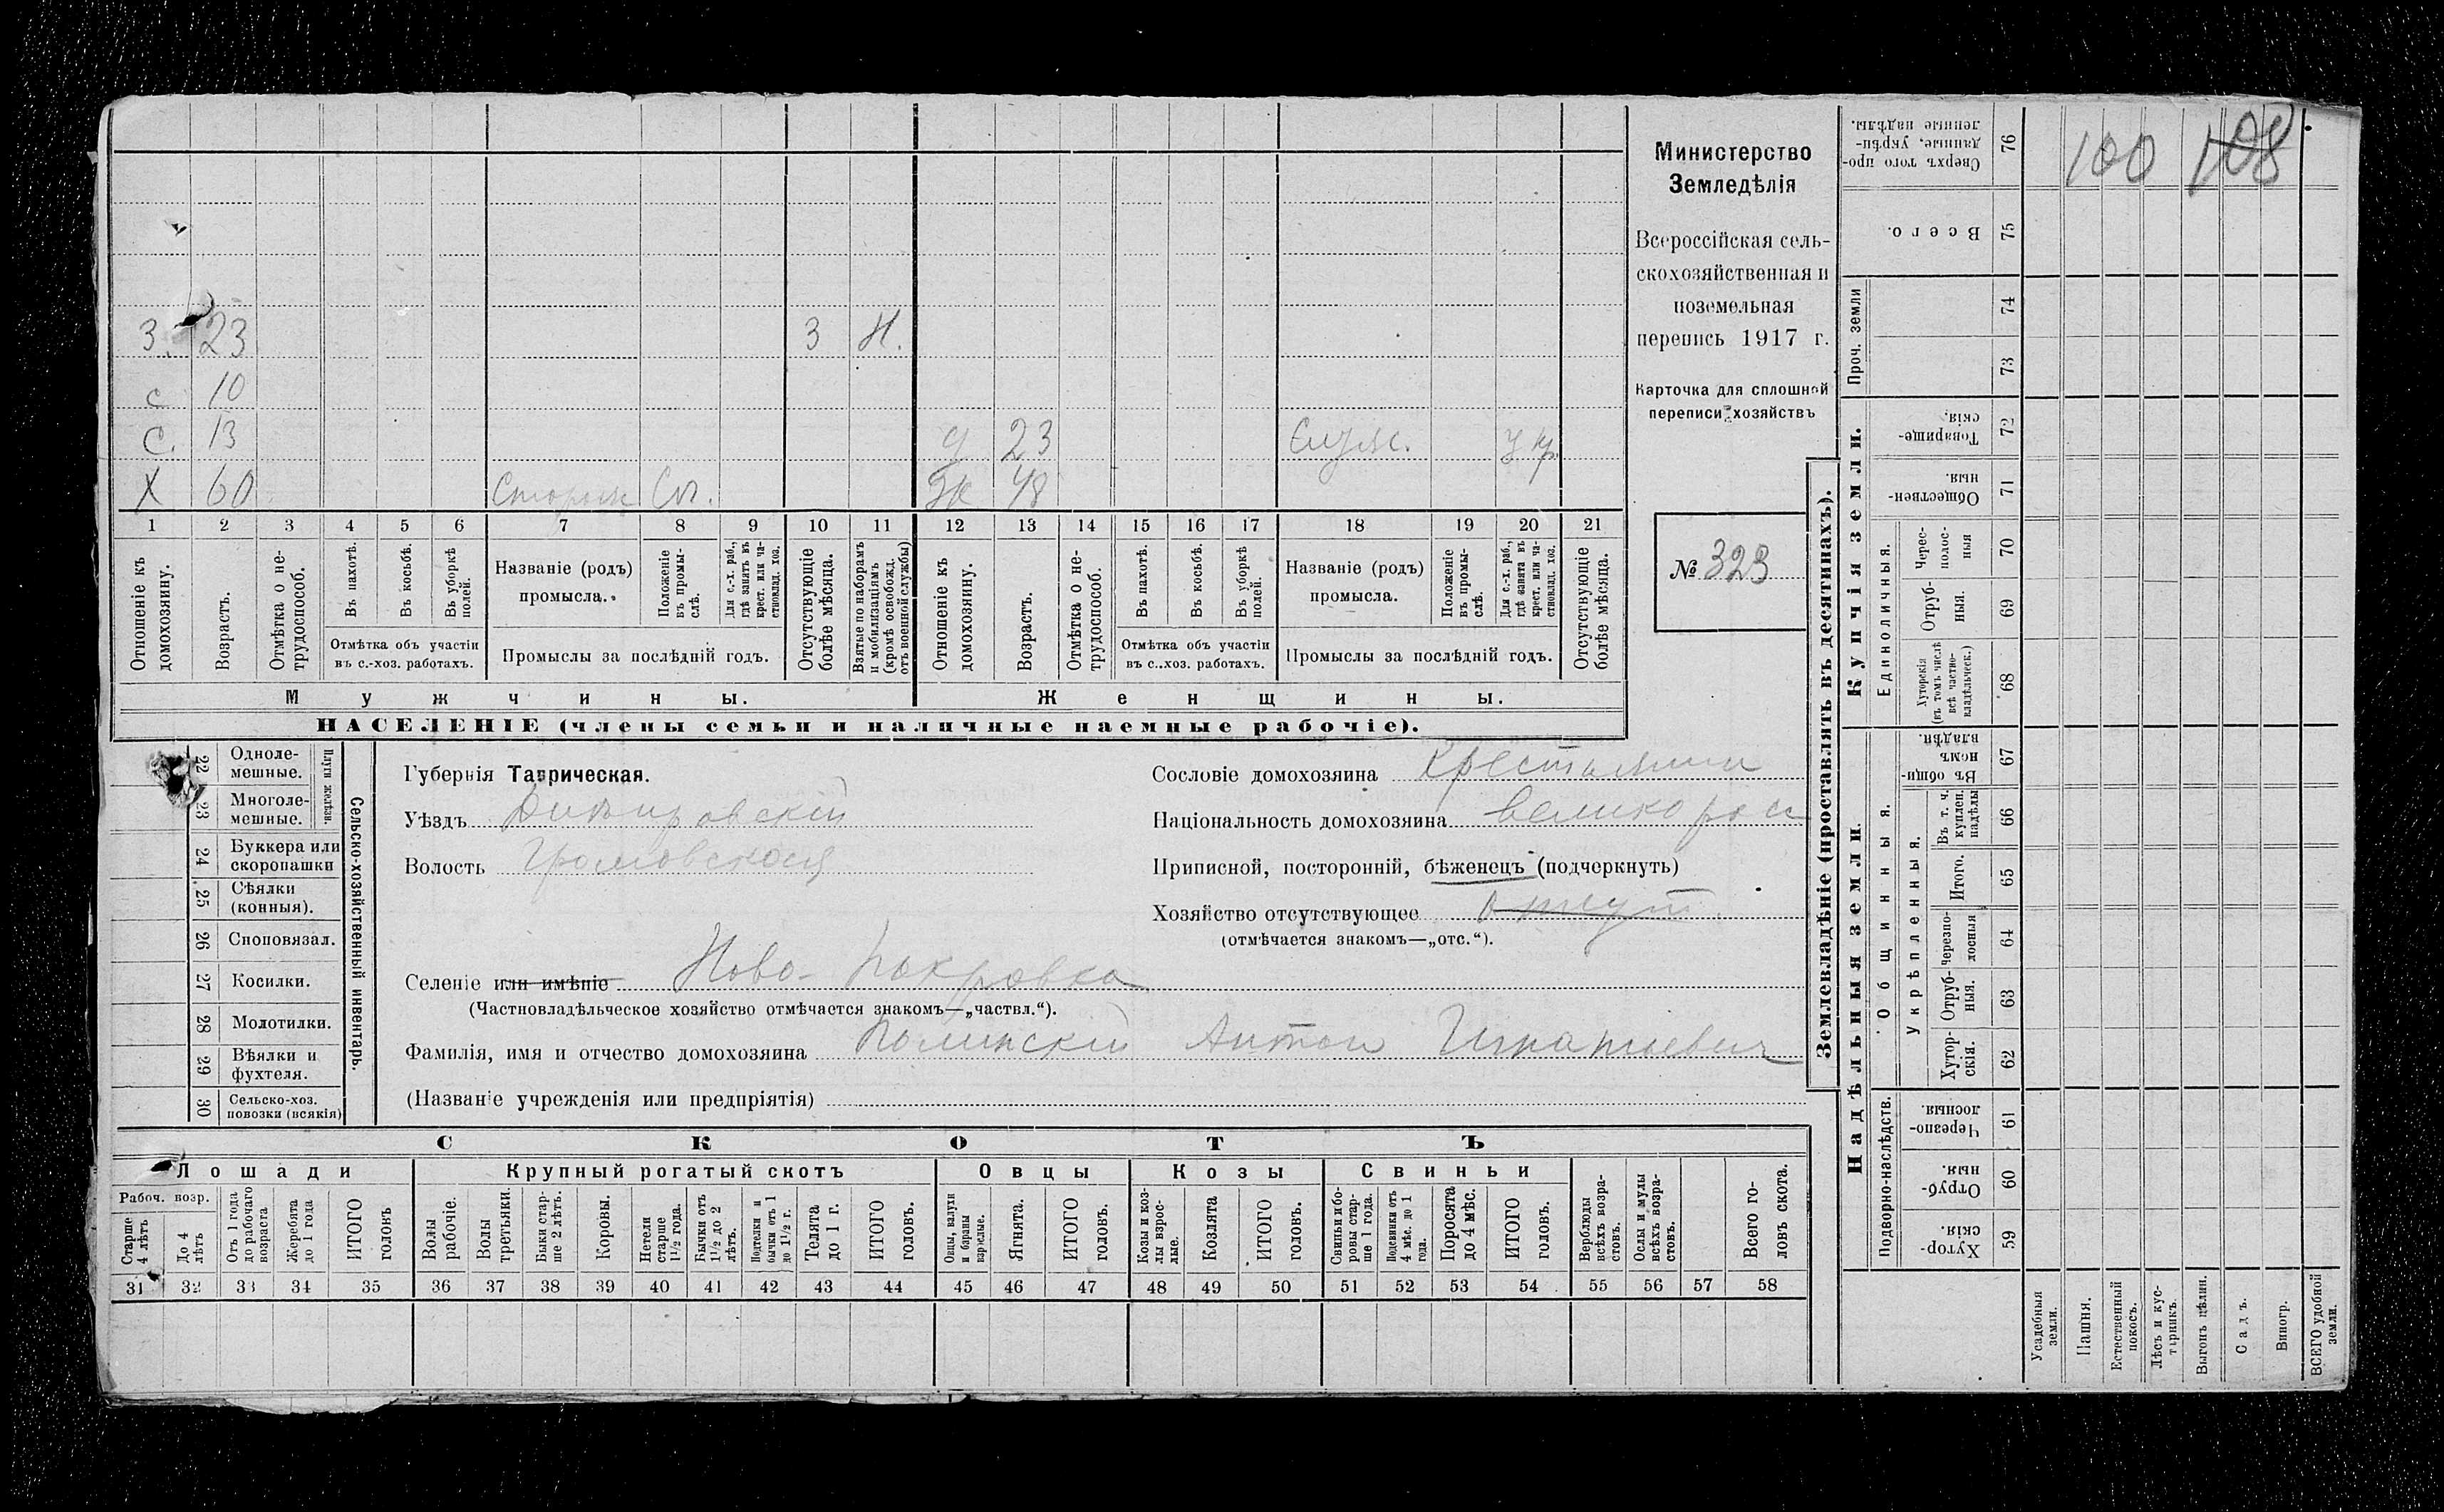 3. 23 3 Н.
с 10
С. 13 д 23 Служ. у кр.
Х 60 Сторож Сл. Ж 48
1 2 3 4 5 6 7 8 9 10 11 12 13 14 15 16 17 18 19 20 21
Отношеніе къ домохозяину.
Возрастъ.
Отмѣтка о не-
трудоспособ.
Въ пахотѣ.
Въ косьбѣ.
Въ уборкѣ
полей.
Отмѣтка объ участіи
въ с.-хоз. работахъ.
Названіе (родъ)
промысла.
Положеніе
въ промы-
слѣ.
Для с.-х. раб.,
гдѣ занятъ въ
крест. или ча-
стновлад. хоз.
Промыслы за послѣдній годъ.
Отсутствующіе
болѣе мѣсяца.
Взятые по наборамъ
и мобилизаціямъ
(кромѣ освобожд.
отъ военной службы)
Отношеніе къ
домохозяину.
Возрастъ.
Отмѣтка о не-
трудоспособ.
Въ пахотѣ.
Въ косьбѣ.
Въ уборкѣ
полей.
Отмѣтка объ участіи
въ с..хоз. работахъ.
Названіе (родъ)
промысла.
Положеніе
въ промы-
слѣ.
Для с.-х. раб.,
гдѣ занята въ
крест. или ча-
стновлад. хоз.
Промыслы за послѣдній годъ.
Отсутствующіе
болѣе мѣсяца.
Мужчины. Женщины.
НАСЕЛЕНІЕ (члены семьи и наличные наемные рабочіе).
Министерство
Земледѣлія
Всероссійская сель-
скохозяйственная и
поземельная
перепись 1917 г.
Карточка для сплошной
переписи хозяйствъ
№ 323
22 Одноле-
мешные.
23 Многоле-
мешные.
Плуги желѣзн.
24 Буккера или
скоропашки
25 Сѣялки
(конныя).
26 Сноповязал.
27 Косилки.
28 Молотилки.
29 Вѣялки и
фухтеля.
30 Сельско-хоз.
повозки (всякія)
Сельско-хозяйственный инвентарь.
Губернія Таврическая.
Уѣздъ Днѣпровскій
Волость Громовская
Селеніе или имѣніе Ново-Покровка
(Частновладѣльческое хозяйство отмѣчается знакомъ—„частвл.“).
Фамилія, имя и отчество домохозяина Полинскій Антон Игнатьевич
(Названіе учрежденія или предпріятія)
Сословіе домохозяина Крестьянин
Національность домохозяина великоросс
Приписной, посторонній, бѣженецъ (подчеркнуть)
Хозяйство отсутствующее
(отмѣчается знакомъ—„отс.“).
СКОТЪ
Лошади Крупный рогатый скотъ Овцы Козы Свиньи
Рабоч. возр.
Старше
4 лѣтъ
До 4
лѣтъ
Отъ 1 года
до рабочаго
возраста
Жеребята
до 1 года
ИТОГО
головъ
Волы
рабочіе.
Волы
третьяки.
Быки стар-
ше 2 лѣтъ.
Коровы.
Нетели
старше
1½ года.
Бычки отъ
1½ до 2
лѣтъ.
Подтелки и
бычки отъ 1
до 1½ г.
Телята
до 1 г.
ИТОГО
головъ.
Овцы, валухи
и бараны
взрослые.
Ягнята.
ИТОГО
головъ.
Козы и коз-
лы взрос-
лые.
Козлята
ИТОГО
головъ.
Свиньи и бо-
ровы стар-
ше 1 года.
Подсвинки отъ
4 мѣс. до 1
года.
Поросята
до 4 мѣс.
ИТОГО
головъ.
Верблюды
всѣхъ возра-
стовъ.
Ослы и мулы
всѣхъ возра-
стовъ.
Всего го-
ловъ скота.
31 32 33 34 35 36 37 38 39 40 41 42 43 44 45 46 47 48 49 50 51 52 53 54 55 56 57 58
Землевладѣніе (проставлять въ десятинахъ).
Сверхъ того про-
данные, укрѣп-
ленные надѣлы.
76
100 108
Всего.
75
Проч. земли
74
73
Купчія земли.
Товарище-
скія.
72
Обществен-
ныя.
71
Единоличныя.
Черес-
полос-
ныя
70
Отруб-
ныя.
69
Хуторскія
(въ томъ числѣ
всѣ частно-
владѣльческ.)
68
Надѣльныя земли.
Общинныя.
Въ общин-
номъ
владѣн.
67
Укрѣпленныя.
Въ т. ч.
куплен.
надѣлы
66
Итого.
65
Черезпо-
лосныя
64
Отруб-
ныя.
63
Хутор-
скія.
62
Подворно-наслѣдств.
Черезпо-
лосныя.
61
Отруб-
ныя.
60
Хутор-
скія.
59
Усадебныя
земли.
Пашня.
Естественный
покосъ.
Лѣсъ и кус-
тарникъ.
Выгонъ цѣлин.
Садъ.
Виногр.
ВСЕГО удобной
земли.